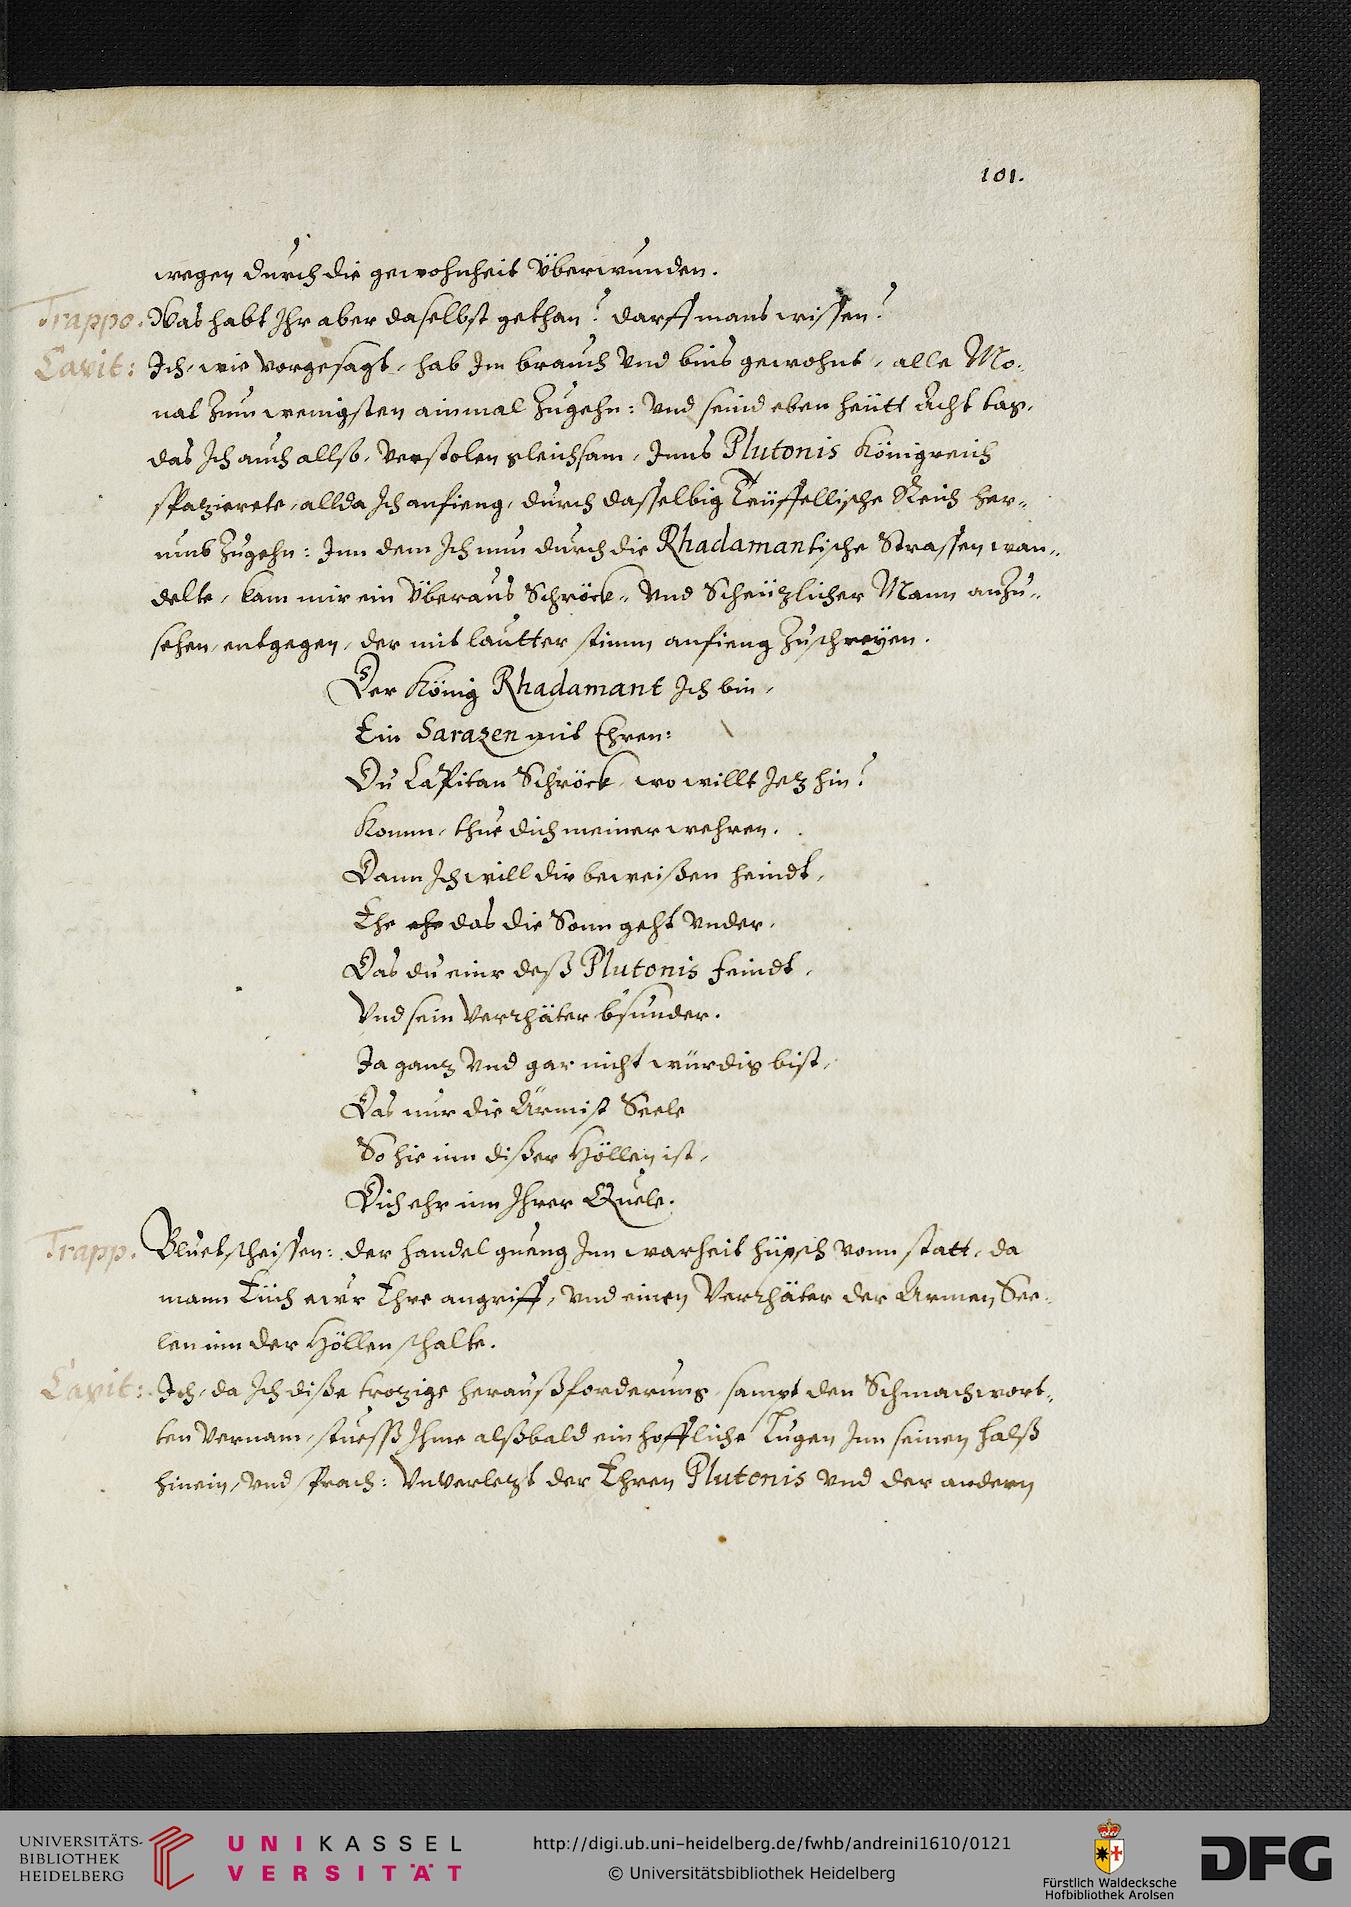 101.
wegen durch die gewohnheit Überwunden.
Trappo. Was habt Ihr aber daselbst gethan? darff mans wissen?
Capit: Ich, wie vorgesagt, hab Im brauch Vnd bins gewohnt, alle Mo-
nat Zum wenigsten ainmal Zugehn: Vnd seind eben heütt Acht tag,
das Ich auch allso, Verstolen gleichsam, Inns Plutonis Königreich
spatzierete, allda Ich anfieng, durch dasselbig Teüffellische Reich her-
umb Zugehn: Inn dem Ich nun durch die Rhadamantische Strassen wan-
delte, kam mir ein Überaus Schröck- Vnd Scheützlicher Mann anZu-
sehen, entgegen, der mit lautter stimm anfieng Zuschreyen.
Der König Rhadamant Ich bin,
Ein Sarazen mit Ehren:
Du Capitan Schröck, wo willt Jetz hin?
Komm, thue dich meiner wehren.
Dann Ich will dir beweißen heindt,
Ehe ehe das die Sonn geht Vnder,
Das du einr deß Plutonis feindt,
Vnd sein Verrhäter bsunder.
Ja gantz Vnd gar nicht würdig bist,
Das nur die Ärmist Seele
So hie inn dißer Höllen ist,
Dich ehr inn Ihrer Quele.
Trapp. Bluetscheissen: der handel gueng Inn warheit hüpsch vonn statt, da
mann Eüch ewr Ehre angriff, vnd einen Verrhäter der Armen See-
len inn der Höllen schalte.
Capit: Ich, da Ich diße trozige heraußforderung, sampt den Schmachwort-
ten Vernam, stuesß Ihme alßbald ein hoffliche Lugen Inn seinen halß
hinein, vnd sprach: Vnverletzt der Ehren Plutonis vnd der andern
UNIVERSITÄTS-
BIBLIOTHEK
HEIDELBERG
UNIKASSEL
VERSITÄT
http://digi.ub.uni-heidelberg.de/fwhb/andreini1610/0121
© Universitätsbibliothek Heidelberg
Fürstlich Waldecksche
Hofbibliothek Arolsen
DFG